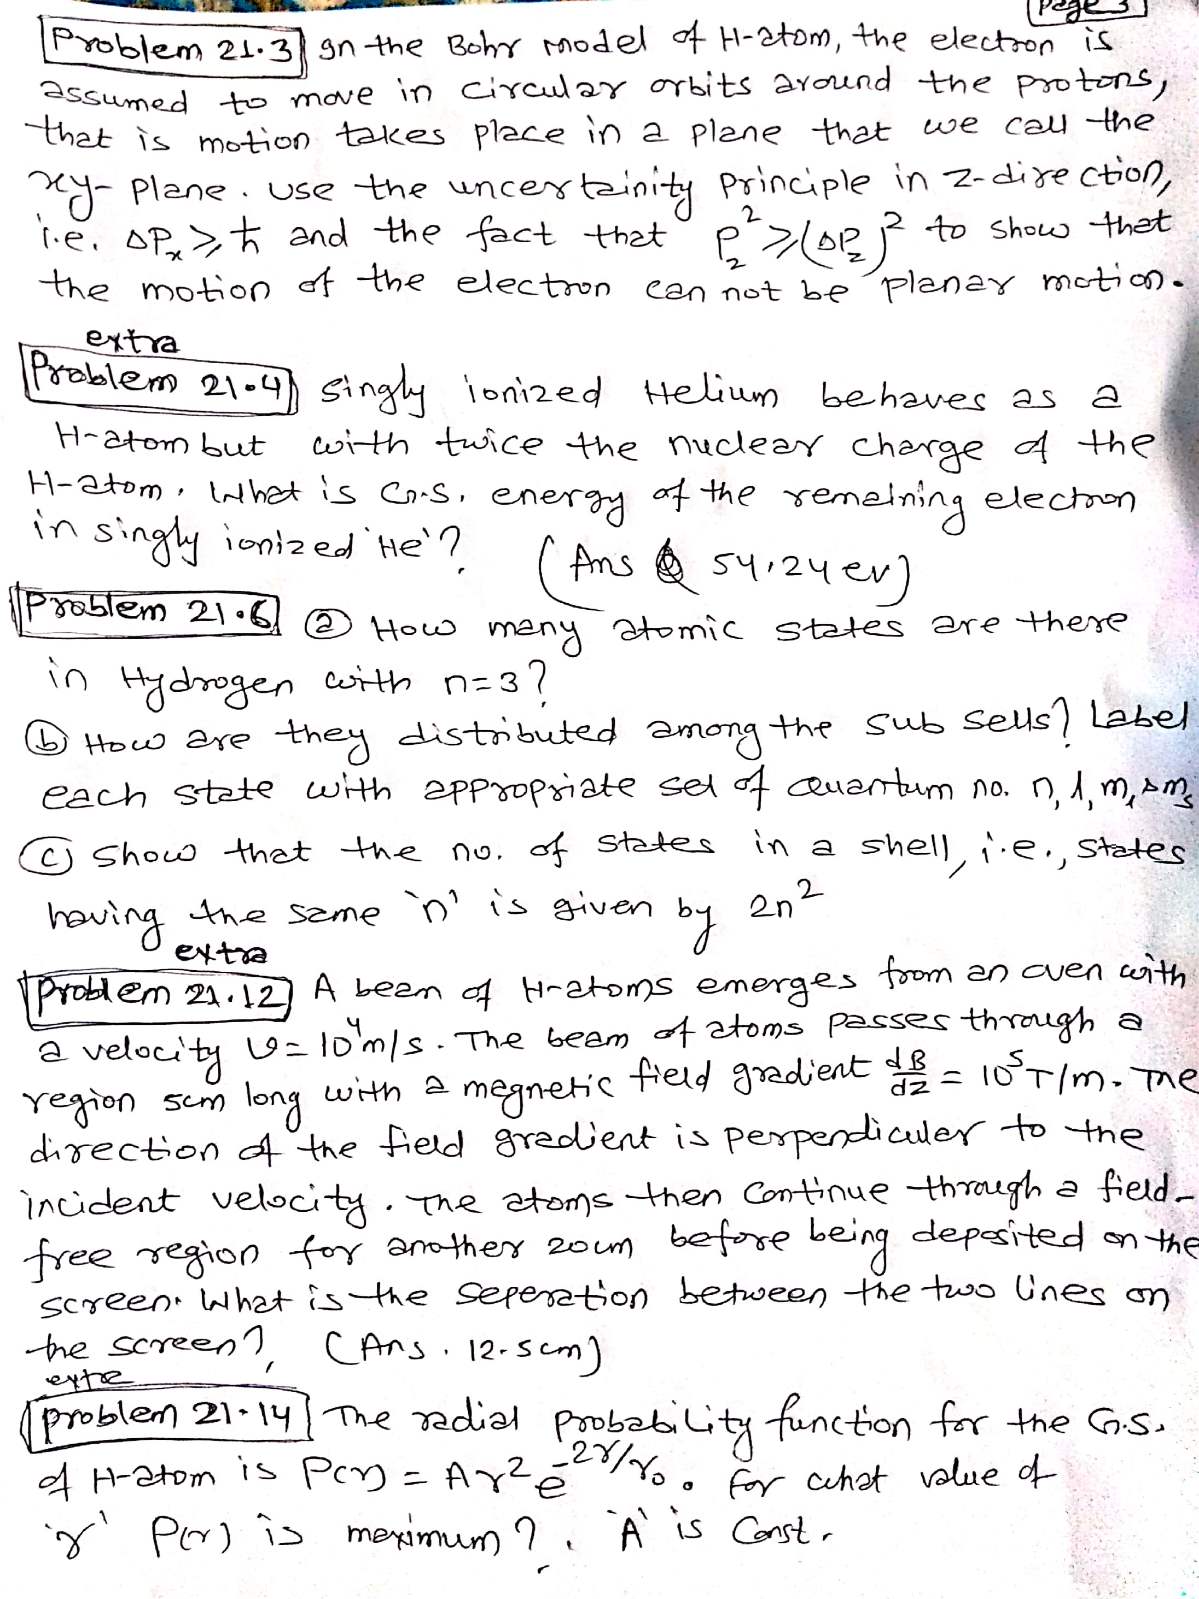 Page 3
Problem 21.3 In the Bohr model of H-atom, the electron is
assumed to move in circular orbits around the protons,
that is motion takes place in a plane that we call the
xy- plane. Use the uncertainity principle in z-direction,
i.e. ΔPₓ ≥ ħ and the fact that P_z² ≥ (ΔP_z)² to show that
the motion of the electron can not be planar motion.
extra
Problem 21.4 Singly ionized Helium behaves as a
H-atom but with twice the nuclear charge of the
H-atom. What is G.S. energy of the remaining electron
in singly ionized 'He'? (Ans 54.24 ev)
Problem 21.6 (a) How many atomic states are there
in Hydrogen with n=3?
(b) How are they distributed among the sub sells? Label
each state with appropriate set of quantum no. n, l, mₗ, mₛ
(c) Show that the no. of states in a shell, i.e., states
having the same 'n' is given by 2n²
extra
Problem 21.12 A beam of H-atoms emerges from an oven with
a velocity v = 10⁴m/s. The beam of atoms passes through a
region 5cm long with a magnetic field gradient dB/dz = 10⁵T/m. The
direction of the field gradient is perpendicular to the
incident velocity. The atoms then continue through a field-
free region for another 20cm before being deposited on the
screen. What is the seperation between the two lines on
the screen? (Ans. 12.5cm)
extra
Problem 21.14 The radial probability function for the G.S.
of H-atom is P(r) = Ar² e^-2r/r₀. For what value of
'r' P(r) is maximum? 'A' is Const.